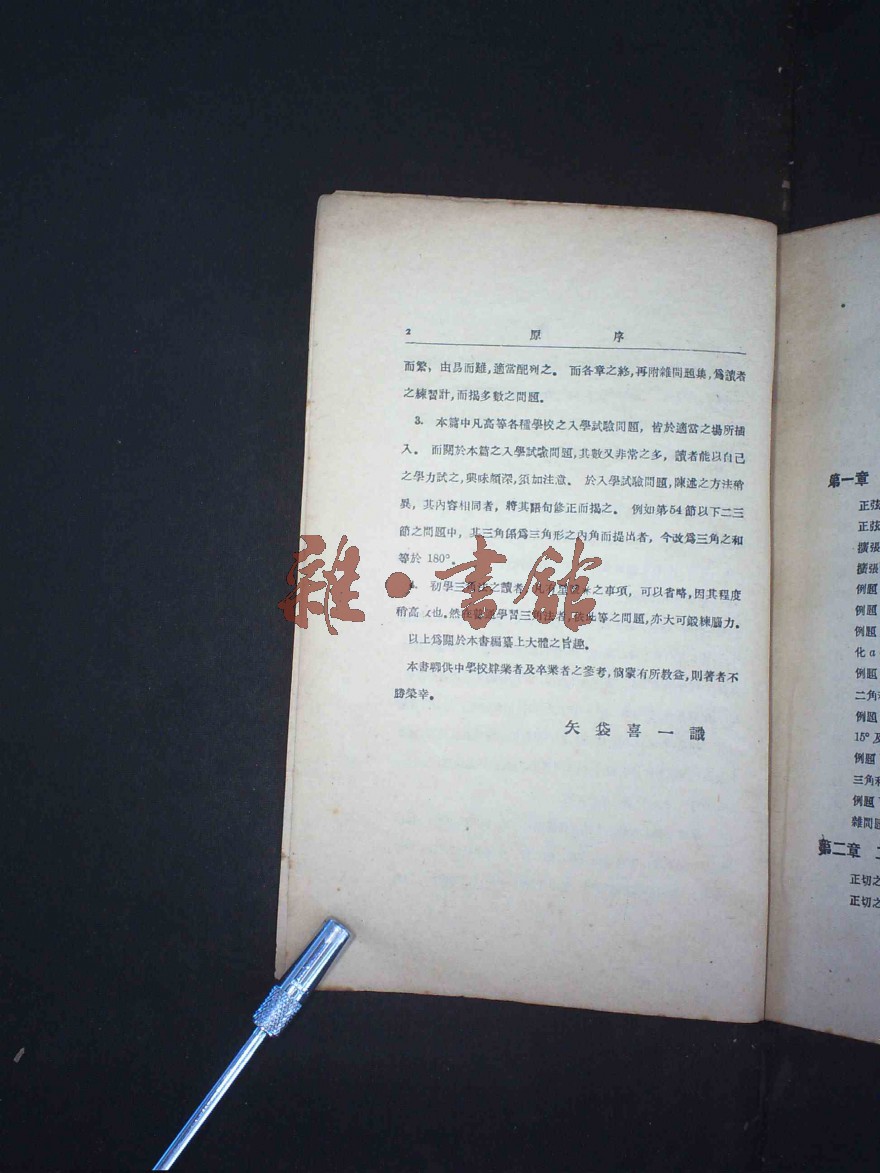 2 原序
而繁，由易而難，適當配列之。 而各章之終，再附雜問題集，爲讀者
之練習計，而揭多數之問題。
3. 本篇中凡高等各種學校之入學試驗問題，皆於適當之場所插
入。 而關於本篇之入學試驗問題，其數又非常之多，讀者能以自己
之學力試之，興味頗深，須加注意。 於入學試驗問題，陳述之方法稍
異，其內容相同者，將其語句修正而揭之。 例如第54節以下二三
節之問題中，其三角係爲三角形之內角而提出者，今改爲三角之和
等於 180°.
初學三角法之讀者 之事項，可以省略，因其程度
稍高 也。然 學習三角法者， 等之問題，亦大可鍛練腦力。
以上爲關於本書編纂上大體之旨趣。
本書聊供中學校肄業者及卒業者之參考，倘蒙有所教益，則著者不
勝榮幸。
矢袋喜一識
雜·書館
第一章
正弦
正弦
擴張
擴張
例題
例題
例題
化α
例題
二角
例題
15°及
例題
三角和
例題
雜問題
第二章
正切之
正切之